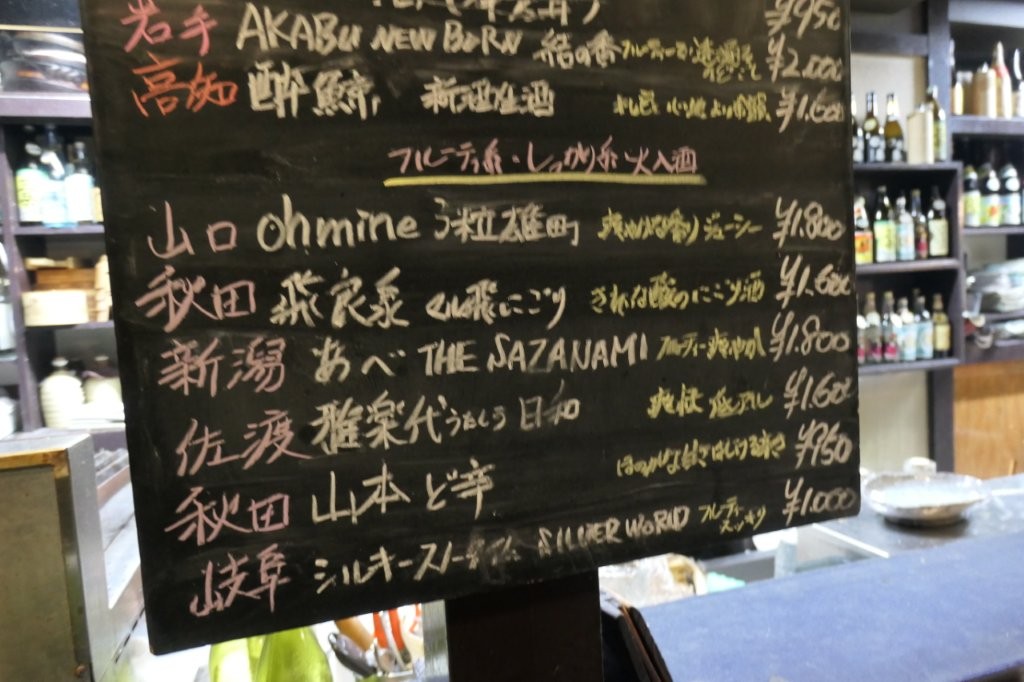 ¥950
岩手 AKABU NEW BORN 結の香 フルーティー ¥2.000
高知 酔鯨 新酒生酒 ¥1.600
フルーティ系・しっかり系 火入酒
山口 ohmine 3粒雄町 爽やかな香り ジューシー ¥1.800
秋田 飛良泉 マル飛にごり きれいな酸のにごり酒 ¥1.600
新潟 あべ THE SAZANAMI フルーティー 爽やか ¥1.800
佐渡 雅楽代 うたしろ 日和 爽快 低アル ¥1.600
秋田 山本 ど辛 ほのかな甘さはじける辛さ ¥950
岐阜 シルキースノータイム SILVER WORLD フルーティー スッキリ ¥1.000